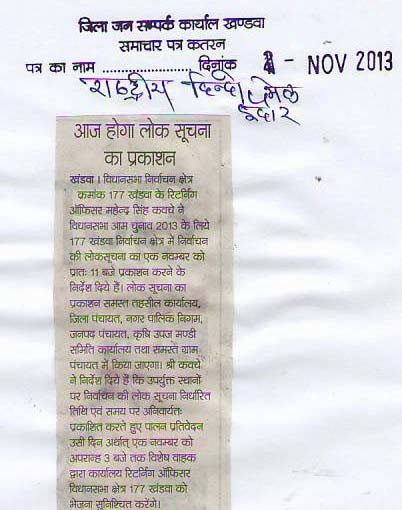 जिला जन सम्पर्क कार्याल खण्डवा
समाचार पत्र कतरन
पत्र का नाम ........................ दिनांक - NOV 2013
राष्ट्रीय हिन्दी मेल
इंदौर
आज होगा लोक सूचना
का प्रकाशन
खंडवा। विधानसभा निर्वाचन क्षेत्र
क्रमांक 177 खंडवा के रिटर्निंग
ऑफिसर महेन्द्र सिंह कवचे ने
विधानसभा आम चुनाव 2013 के लिये
177 खंडवा निर्वाचन क्षेत्र में निर्वाचन
की लोकसूचना का एक नवम्बर को
प्रातः 11 बजे प्रकाशन करने के
निर्देश दिये हैं। लोक सूचना का
प्रकाशन समस्त तहसील कार्यालय,
जिला पंचायत, नगर पालिक निगम,
जनपद पंचायत, कृषि उपज मण्डी
समिति कार्यालय तथा समस्त ग्राम
पंचायत में किया जाएगा। श्री कवचे
ने निर्देश दिये हैं कि उपर्युक्त स्थानों
पर निर्वाचन की लोक सूचना निर्धारित
तिथि एवं समय पर अनिवार्यतः
प्रकाशित करते हुए पालन प्रतिवेदन
उसी दिन अर्थात् एक नवम्बर को
अपरान्ह 3 बजे तक विशेष वाहक
द्वारा कार्यालय रिटर्निंग ऑफिसर
विधानसभा क्षेत्र 177 खंडवा को
भेजना सुनिश्चित करेंगे।